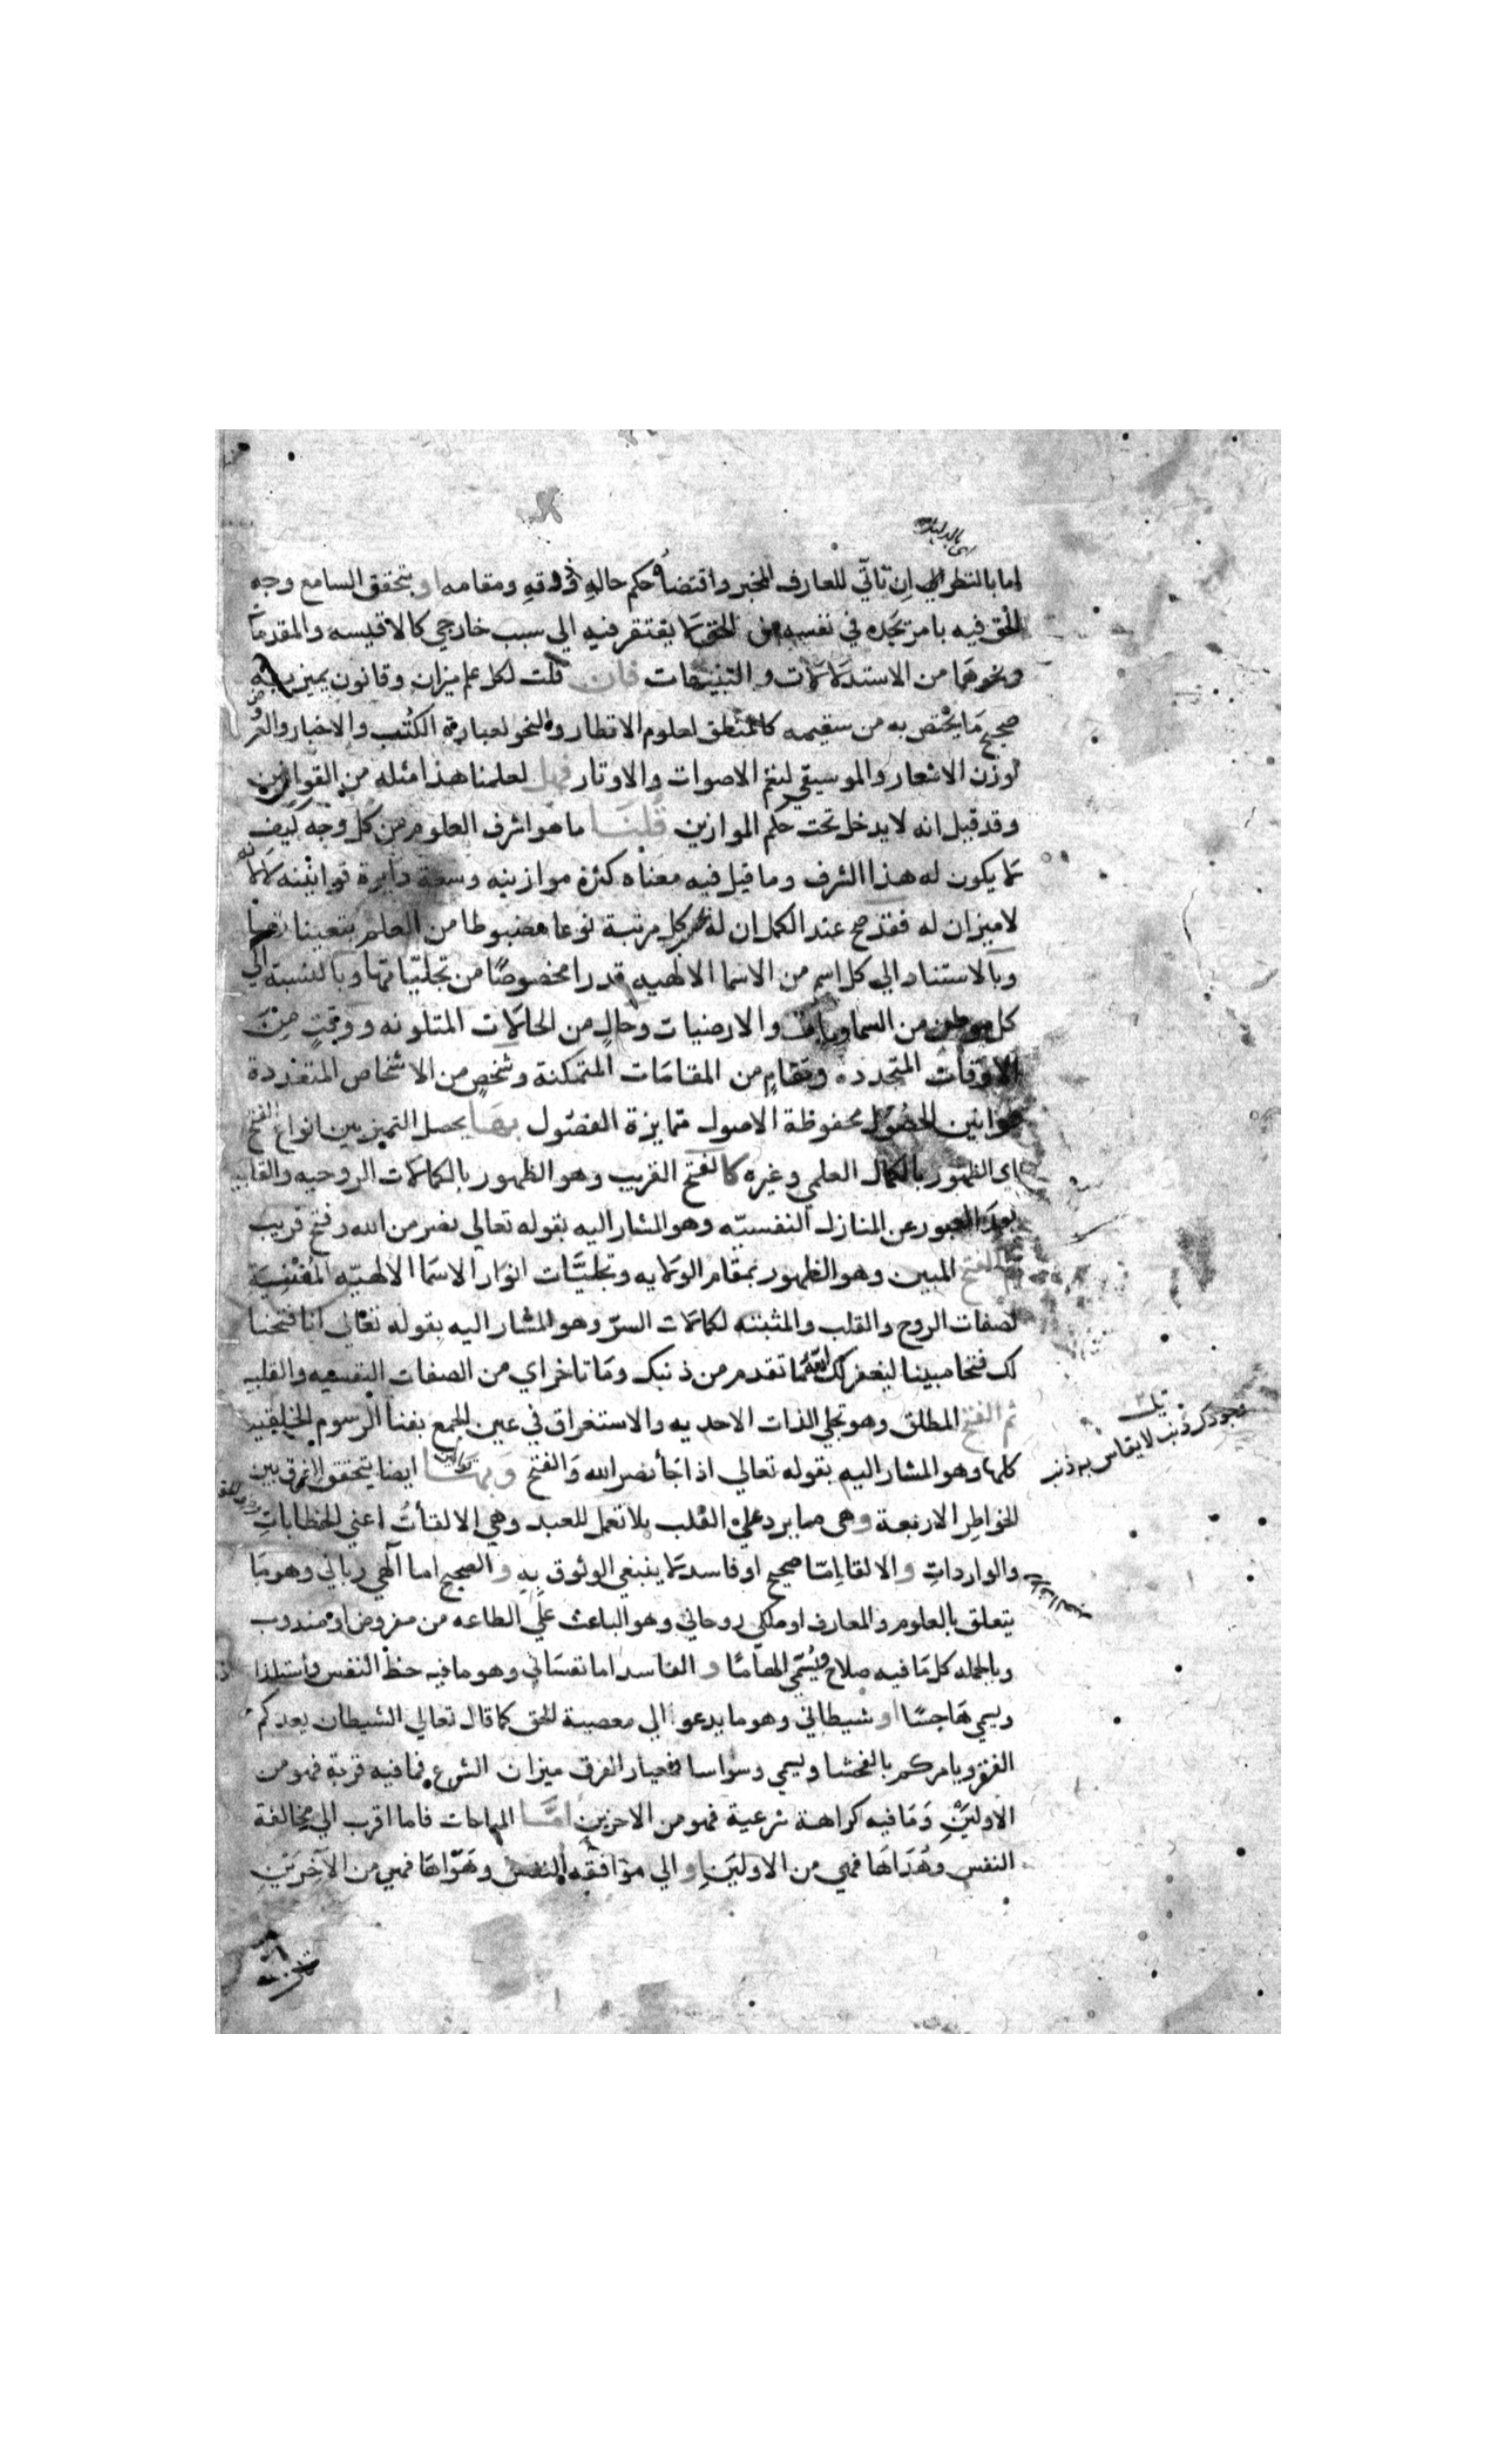 اي بالدليل
اما بالنظر الي ان تاتّي للعارف المخبر واقتضاه حكم حاله وذوقه ومقامه او بتحقق السامع وجه
الحق فيه بامر يجده في نفسه من الحق لا يفتقر فيه الي سبب خارجي كالاقيسه والمقدمات
ونحوهما من الاستدلالات والتنبيهات فان قلت لكل علم ميزان وقانون يميز به
صحيح ما يختص به من سقيمه كالمنطق لعلوم الانظار والنحو لعبارة الكتب والاخبار والعروض
لوزن الاشعار والموسيقي لنغم الاصوات والاوتار فهل لعلمنا هذا مثله من القوانين
وقد قيل انه لا يدخل تحت حكم الموازين قلنا ما هو اشرف العلوم من كل وجه كيف
لا يكون له هذا الشرف وما قيل فيه معناه كثرة موازينه وسعة دايرة قوانينه لا انه
لا ميزان له فقد صح عند الكمل ان له بحسب كل مرتبة نوعا مضبوطا من العلم يتعينا
وبالاستناد الي كل اسم من الاسما الالهيه قدرا مخصوصًا من تجلياتها وبالنسبة الي
كل موطن من السماويات والارضيات وحال من الحالات المتلونه ووقت من
الاوقات المتجدده ومقام من المقامات المتمكنة وشخص من الاشخاص المتعددة
موانين الحصول محفوظة الاصول متمايزة الفصول بها يحصل التميز بين انواع الفتح
اي الظهور بالكمال العلمي وغيره كالفتح القريب وهو الظهور بالكمالات الروحيه والقلبيه
بعد العبور عن المنازل النفسيّه وهو المشار اليه بقوله تعالي نصر من الله وفتح قريب
ثم الفتح المبين وهو الظهور بمقام الولايه وتجليّات انوار الاسما الالهيّه المفنية
لصفات الروح والقلب والمثبته لكمالات السرّ وهو المشار اليه بقوله تعالي انا فتحنا
لك فتحا مبينا ليغفر لك الله ما تقدم من ذنبك وما تاخر اي من الصفات النفسيه والقلبيه
ثم الفتح المطلق وهو تجلي الذات الاحديه والاستغراق في عين الجمع بفنا الرسوم الخلقيه
كلها وهو المشار اليه بقوله تعالي اذا جا نصر الله والفتح وبهـا ايضا يتحقق الفرق بين
الخواطر الاربعة وهي ما يرد علي القلب بلا تعمل للعبد وهي الالقاآت اعني الخطابات
والواردات والالقا اما صحيح او فاسد لا ينبغي الوثوق به والصحيح اما الهي رباني وهو ما
يتعلق بالعلوم والمعارف او ملكي روحاني وهو الباعث علي الطاعه من مفروض او مندوب
وبالجمله كل ما فيه صلاح ويُسمي الهامًا والفاسد اما نفساني وهو ما فيه حظ النفس واستلذاذ
ويسمي هاجسًا او شيطاني وهو ما يدعو الي معصية الحق كما قال تعالي الشيطان يعدكم
الفقر ويامركم بالفحشا ويسمي وسواسا فعيار الفرق ميزان الشرع فما فيه قربة فهو من
الاولين وما فيه كراهة شرعية فهو من الاخرين امّـا المباحات فاما اقرب الي مخالفة
النفس وهداها فهي من الاولين والي موافقه النفس وهواها فهي من الآخرين
ذكر ذنب لا يقاس به ذنب